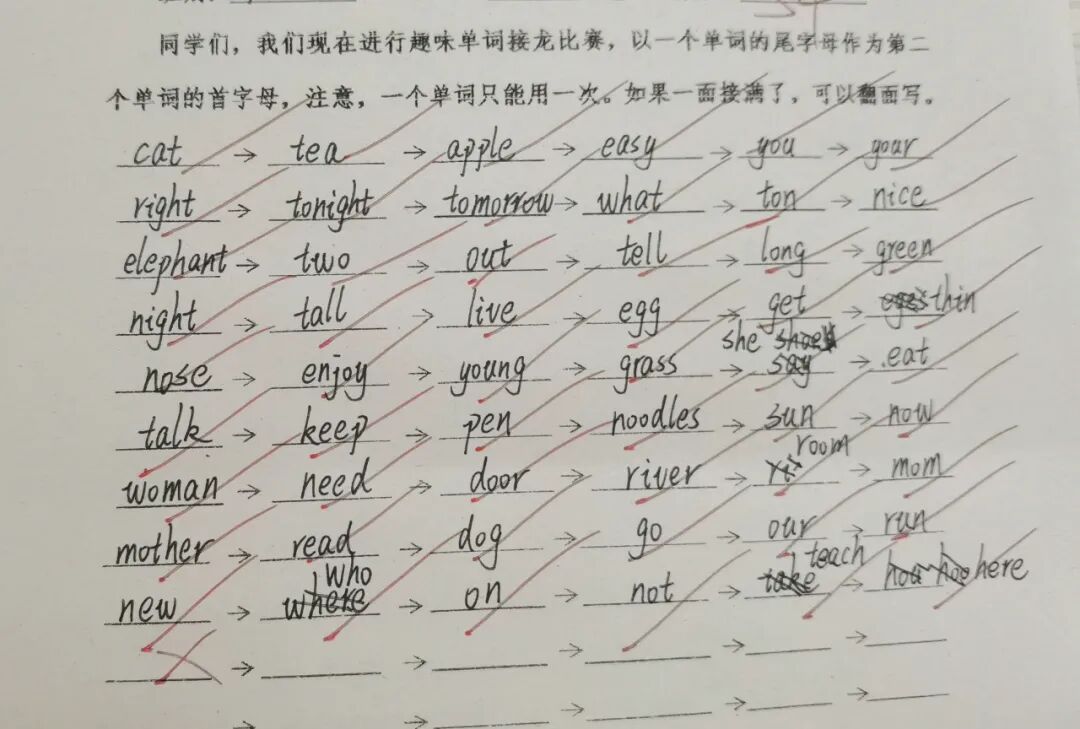 同学们，我们现在进行趣味单词接龙比赛，以一个单词的尾字母作为第二
个单词的首字母，注意，一个单词只能用一次。如果一面接满了，可以翻面写。
cat → tea → apple → easy → you → your
right → tonight → tomorrow → what → ton → nice
elephant → two → out → tell → long → green
night → tall → live → egg → get → thin
nose → enjoy → young → grass → she → eat
talk → keep → pen → noodles → sun → now
woman → need → door → river → room → mom
mother → read → dog → go → our → run
new → who → on → not → teach → here